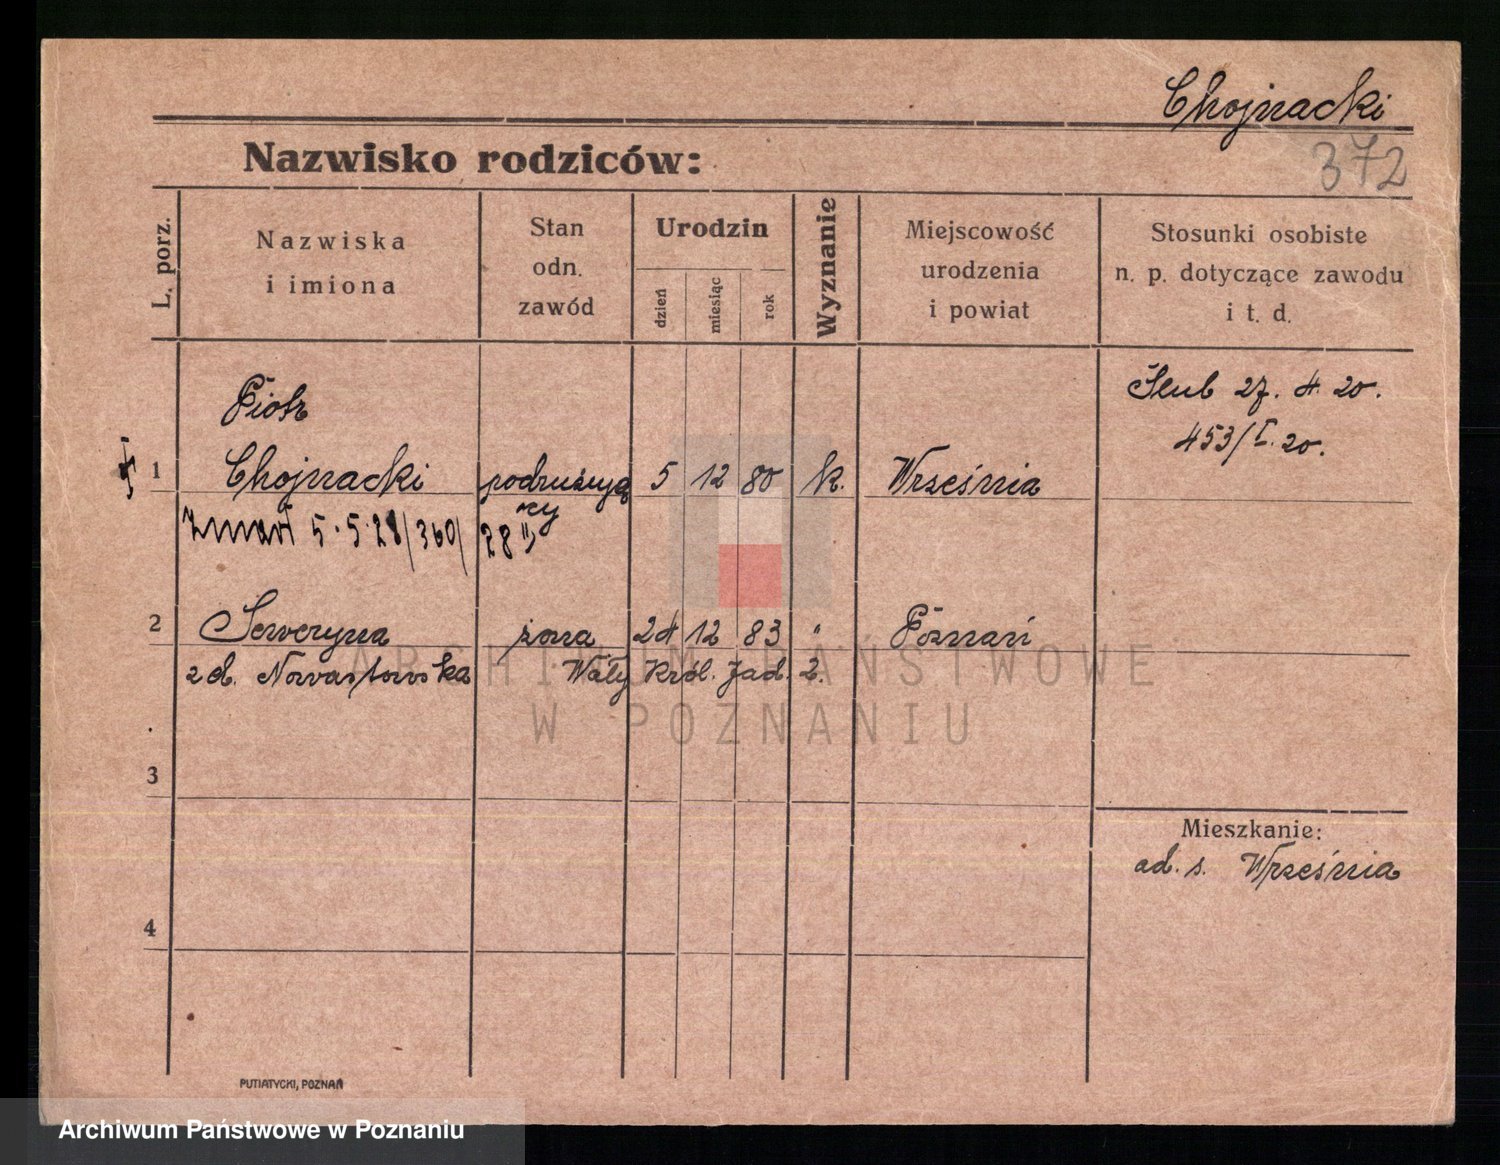 Chojnacki
Nazwisko rodziców:
372
L. porz.
Nazwiska
i imiona
Stan
odn.
zawód
Urodzin
dzień
miesiąc
rok
Wyznanie
Miejscowość
urodzenia
i powiat
Stosunki osobiste
n. p. dotyczące zawodu
i t. d.
Piotr
Ślub 27. 4. 20.
453/I. 20.
1 Chojnacki podrużują 5 12 80 k. Września
cy
Zmarł 5.5.28/360/28
2 Seweryna żona 24 12 83 " Poznań
zd. Nowastowska Wały Król. Jad. 2.
3
Mieszkanie:
ad. s. Września
4
PUTIATYCKI, POZNAŃ
ARCHIWUM PAŃSTWOWE
W POZNANIU
Archiwum Państwowe w Poznaniu